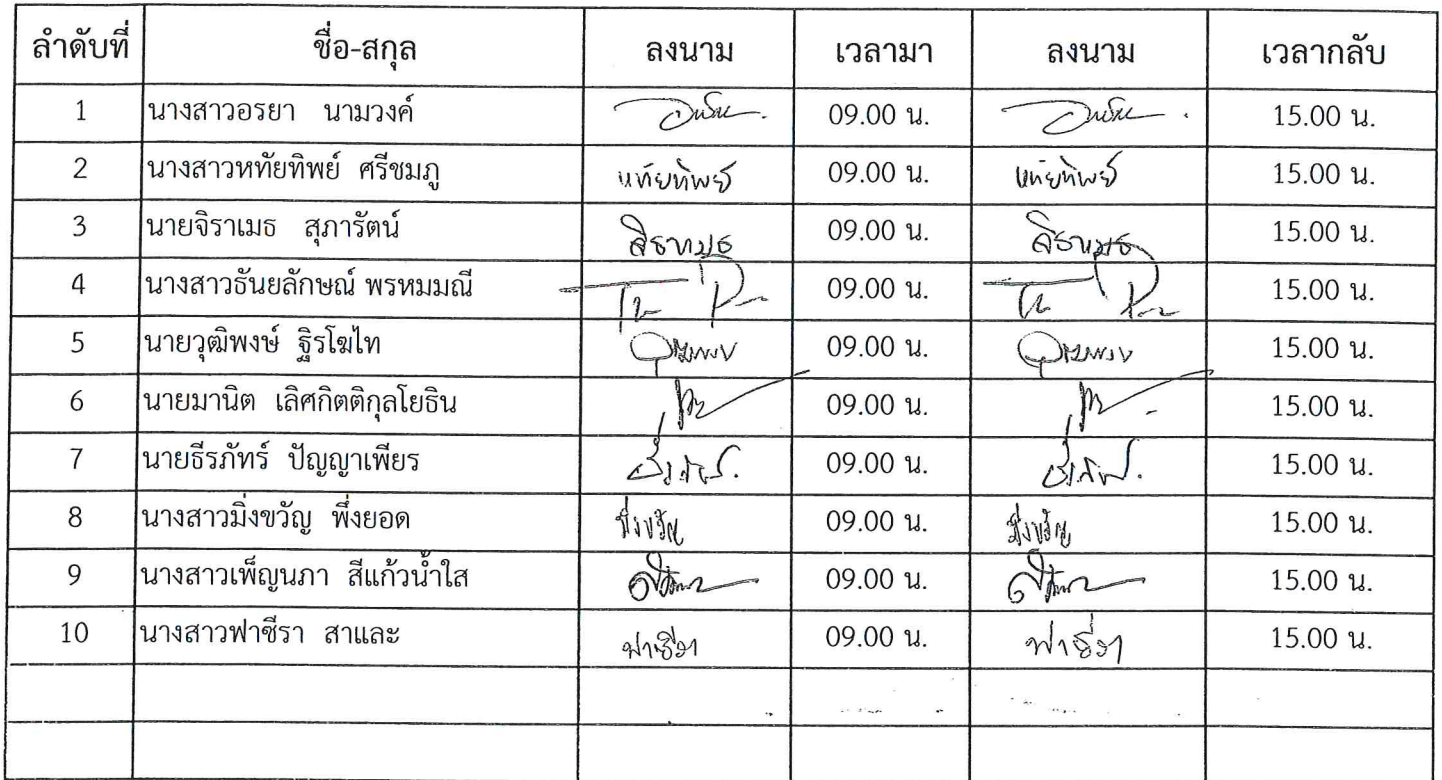 ลำดับที่ ชื่อ-สกุล ลงนาม เวลามา ลงนาม เวลากลับ
1 นางสาวอรยา นามวงค์ 09.00 น. 15.00 น.
2 นางสาวหทัยทิพย์ ศรีชมภู หทัยทิพย์ 09.00 น. หทัยทิพย์ 15.00 น.
3 นายจิราเมธ สุภารัตน์ 09.00 น. 15.00 น.
4 นางสาวธันยลักษณ์ พรหมมณี 09.00 น. 15.00 น.
5 นายวุฒิพงษ์ ฐิรโฆไท 09.00 น. 15.00 น.
6 นายมานิต เลิศกิตติกุลโยธิน 09.00 น. 15.00 น.
7 นายธีรภัทร์ ปัญญาเพียร 09.00 น. 15.00 น.
8 นางสาวมิ่งขวัญ พึ่งยอด มิ่งขวัญ 09.00 น. มิ่งขวัญ 15.00 น.
9 นางสาวเพ็ญนภา สีแก้วน้ำใส 09.00 น. 15.00 น.
10 นางสาวฟาซีรา สาและ ฟาซีรา 09.00 น. ฟาซีรา 15.00 น.